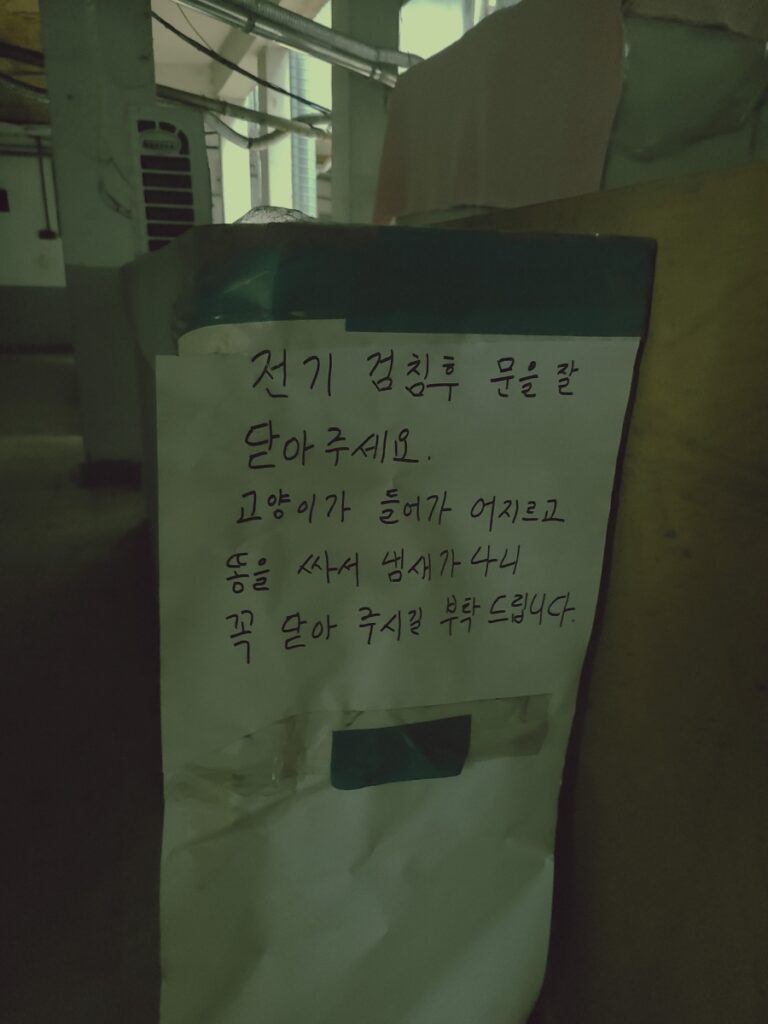 전기 검침후 문을 잘
닫아주세요.
고양이가 들어가 어지르고
똥을 싸서 냄새가 나니
꼭 닫아 주시길 부탁드립니다.